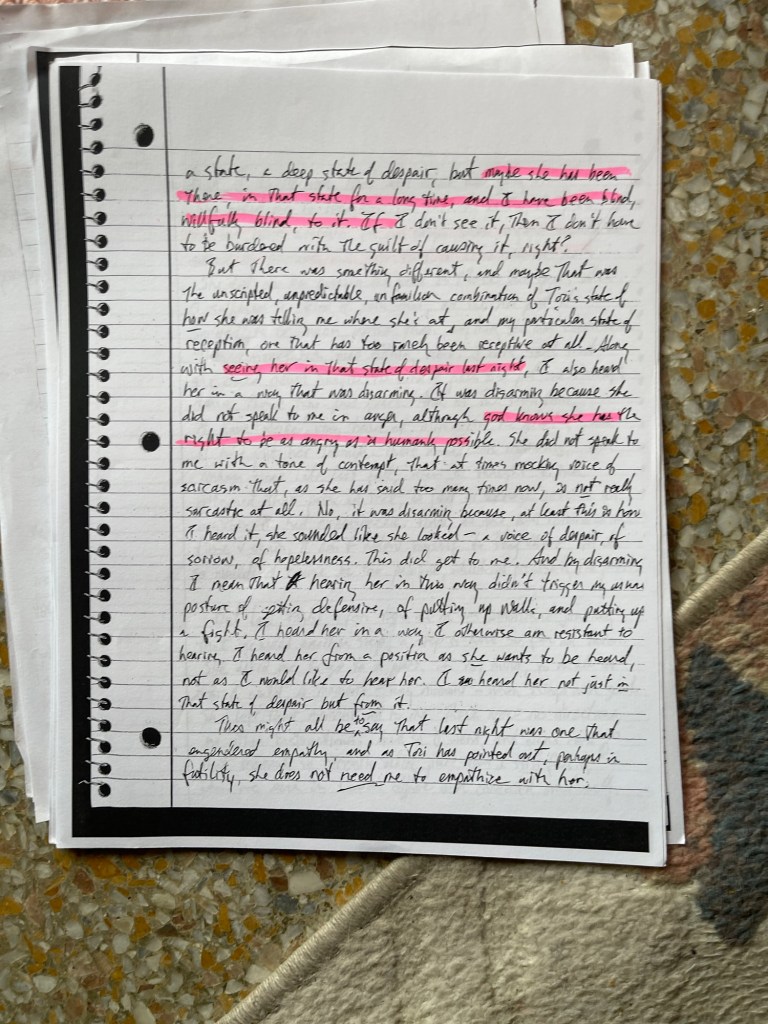 a state, a deep state of despair, but maybe she has been
there, in that state for a long time, and I have been blind,
willfully blind, to it. If I don't see it, then I don't have
to be burdened with the guilt of causing it, right?
But there was something different, and maybe that was
the unscripted, unpredictable, unfamiliar combination of Tori's state of
how she was telling me where she's at, and my particular state of
reception, one that has too rarely been receptive at all. Along
with seeing her in that state of despair last night, I also heard
her in a way that was disarming. It was disarming because she
did not speak to me in anger, although god knows she has the
right to be as angry as is humanly possible. She did not speak to
me with a tone of contempt, that at times mocking voice of
sarcasm that, as she has said too many times now, is not really
sarcastic at all. No, it was disarming because, at least this is how
I heard it, she sounded like she looked – a voice of despair, of
sorrow, of hopelessness. This did get to me. And by disarming
I mean that hearing her in this way didn't trigger my usual
posture of getting defensive, of putting up walls, and putting up
a fight. I heard her in a way I otherwise am resistant to
hearing. I heard her from a position as she wants to be heard,
not as I would like to hear her. I heard her not just in
that state of despair but from it.
This might all be to say that last night was one that
engendered empathy, and as Tori has pointed out, perhaps in
futility, she does not need me to empathize with her.